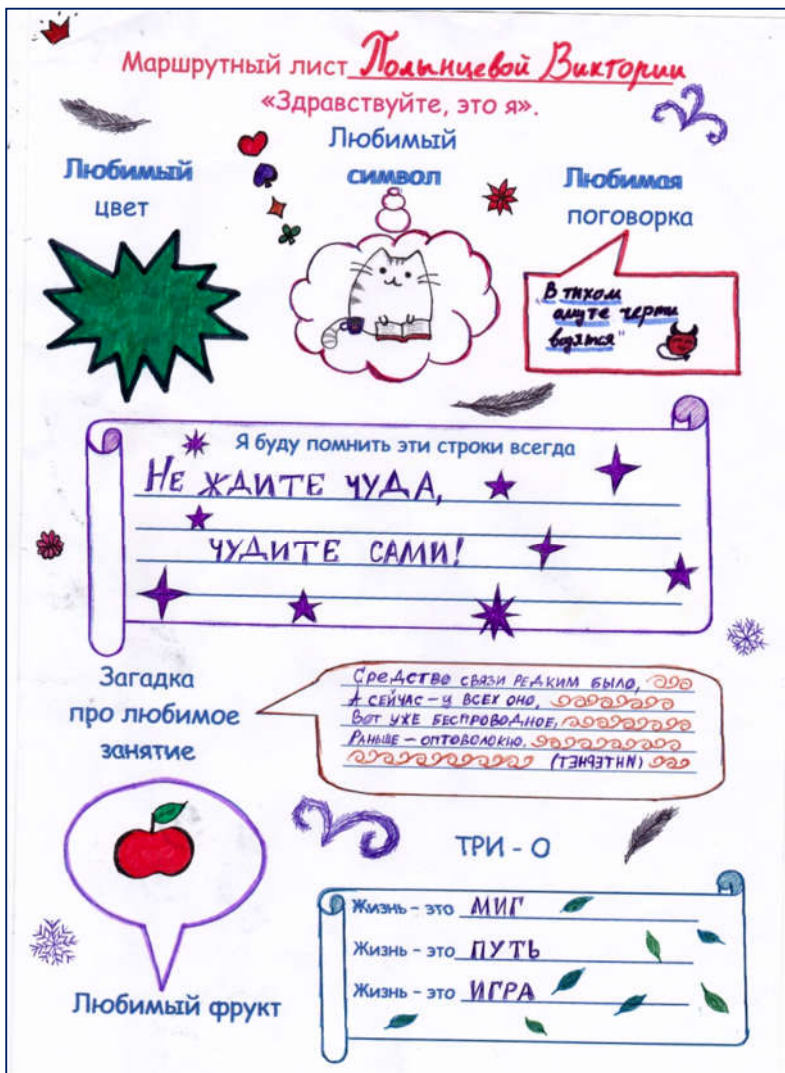 Маршрутный лист Полынцевой Виктории
«Здравствуйте, это я».
Любимый
цвет
Любимый
символ
Любимая
поговорка
"В тихом
омуте черти
водятся"
Я буду помнить эти строки всегда
НЕ ЖДИТЕ ЧУДА,
ЧУДИТЕ САМИ!
Загадка
про любимое
занятие
СРЕДСТВО СВЯЗИ РЕДКИМ БЫЛО,
А СЕЙЧАС – У ВСЕХ ОНО,
ВОТ УЖЕ БЕСПРОВОДНОЕ,
РАНЬШЕ – ОПТОВОЛОКНО.
(ТЭНРЭТНИ)
Любимый фрукт
ТРИ - О
Жизнь - это МИГ
Жизнь - это ПУТЬ
Жизнь - это ИГРА